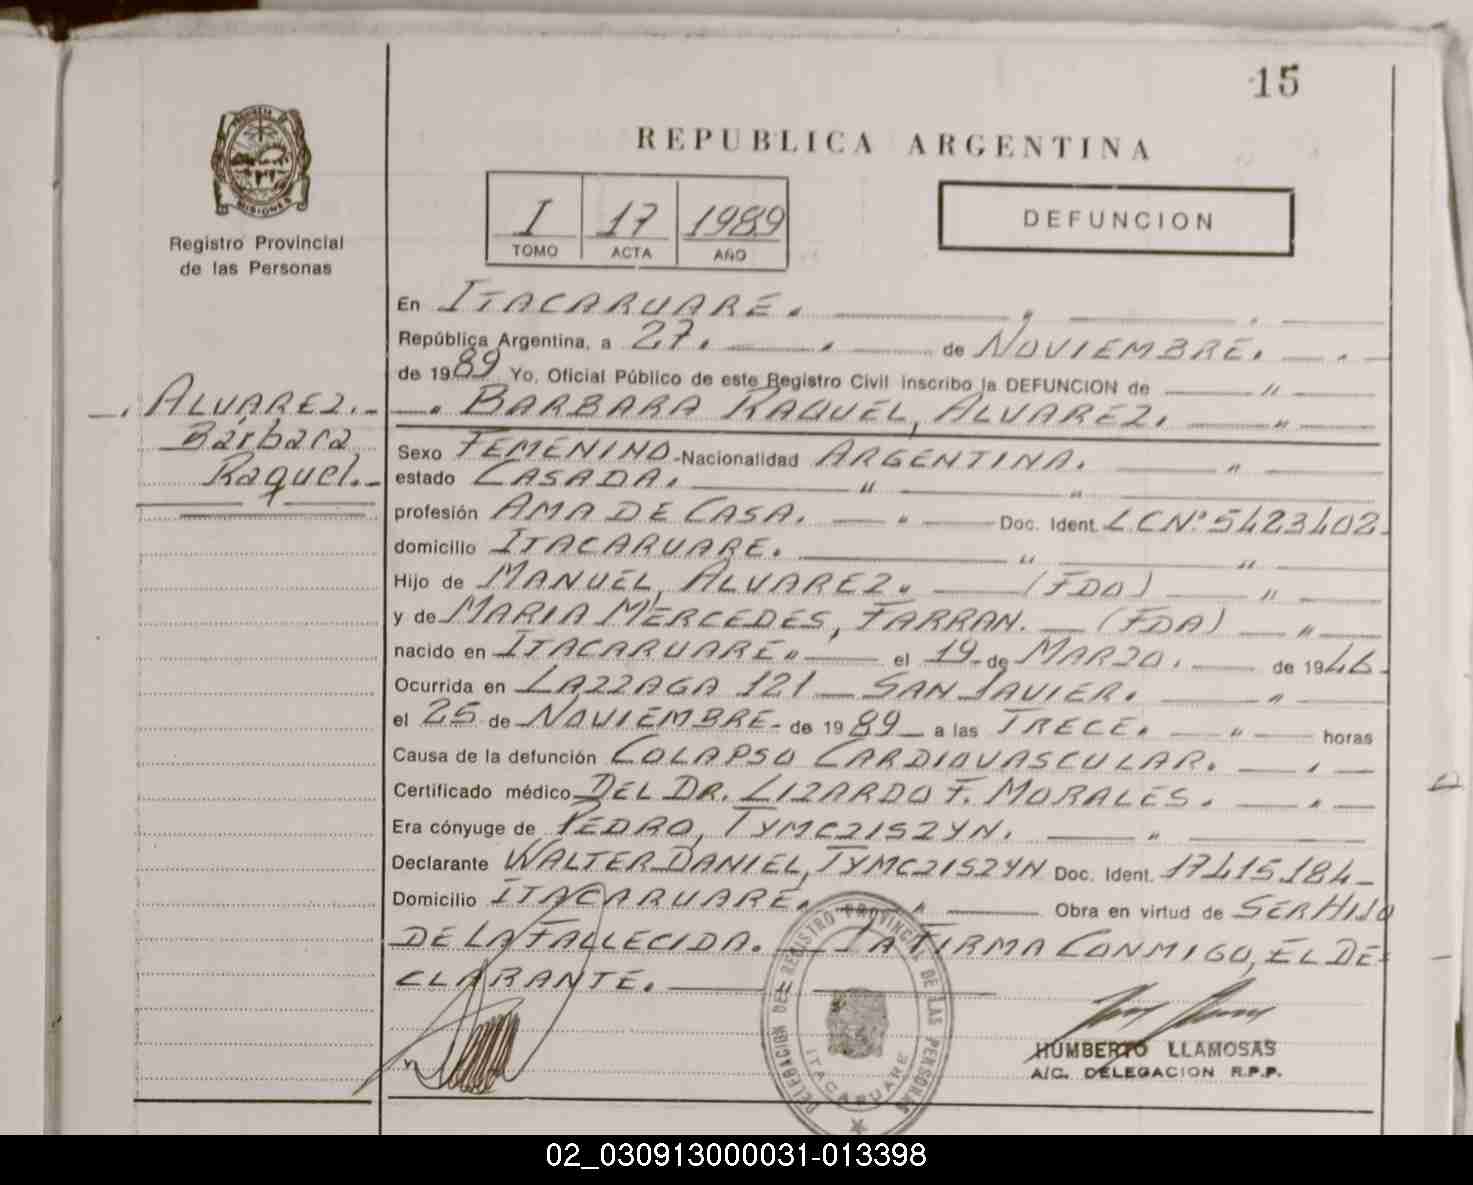 15
PROVINCIA DE
MISIONES
Registro Provincial
de las Personas
REPUBLICA ARGENTINA
I 17 1989
TOMO ACTA AÑO
DEFUNCION
En ITACARUARE.
República Argentina, a 27. de NOVIEMBRE.
de 1989 Yo, Oficial Público de este Registro Civil inscribo la DEFUNCION de "
ALVAREZ.-
Bárbara
Raquel.-
BARBARA RAQUEL, ALVAREZ. "
Sexo FEMENINO-Nacionalidad ARGENTINA. "
estado CASADA. " "
profesión AMA DE CASA. " Doc. Ident. L.C.Nº 5423402.
domicilio ITACARUARE. " "
Hijo de MANUEL, ALVAREZ. (FDO) "
y de MARIA MERCEDES, FARRAN. (FDA) "
nacido en ITACARUARE. " el 19 de MARZO. de 1946
Ocurrida en LAZZAGA 121 - SAN JAVIER. "
el 25 de NOVIEMBRE - de 1989 a las TRECE. " horas
Causa de la defunción COLAPSO CARDIOVASCULAR.
Certificado médico DEL DR. LIZARDO F. MORALES.
Era cónyuge de PEDRO, TYMCZISZYN. "
Declarante WALTER DANIEL, TYMCZISZYN Doc. Ident. 17.415.184-
Domicilio ITACARUARE. Obra en virtud de SER HIJO
DE LA FALLECIDA. - LA FIRMA CONMIGO, EL DE-
CLARANTE.
DELEGACION DEL REGISTRO PROVINCIAL DE LAS PERSONAS
ITACARUARE
HUMBERTO LLAMOSAS
A/C. DELEGACION R.P.P.
02_030913000031-013398